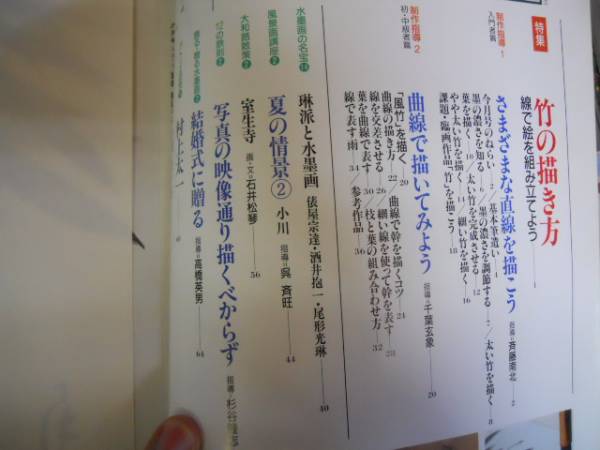 特集
竹の描き方
線で絵を組み立てよう 1
制作指導 1
入門者篇
さまざまな直線を描こう 指導=斉藤南北 2
今月号のねらい 2/基本筆遣い 4
墨の濃さを知る 6/墨の濃さを調節する 7/太い竹を描く 8
葉を描く 10/太い竹を完成させる 12
やや太い竹を描く 14/細い竹を描く 16
課題・臨画作品「竹」を描こう 18
制作指導 2
初・中級者篇
曲線で描いてみよう 指導=千葉玄象 20
「風竹」を描く 20
曲線の描き方 22/曲線で幹を描くコツ 24
線を交差させる 26/細い線を使って幹を表す 28
葉を曲線で表す 30/枝と葉の組み合わせ方 32
線で表す雨 34/参考作品 36
水墨画の名宝 14
琳派と水墨画 俵屋宗達・酒井抱一・尾形光琳 40
風景画講座 2
夏の情景② 小川 指導=呉 斉旺 44
大和路散策 2
室生寺 画・文=石井松琴 56
12の鉄則 2
写真の映像通り描くべからず 指導=杉谷隆志
結婚式に贈る 指導=高橋英男 64
村上太一